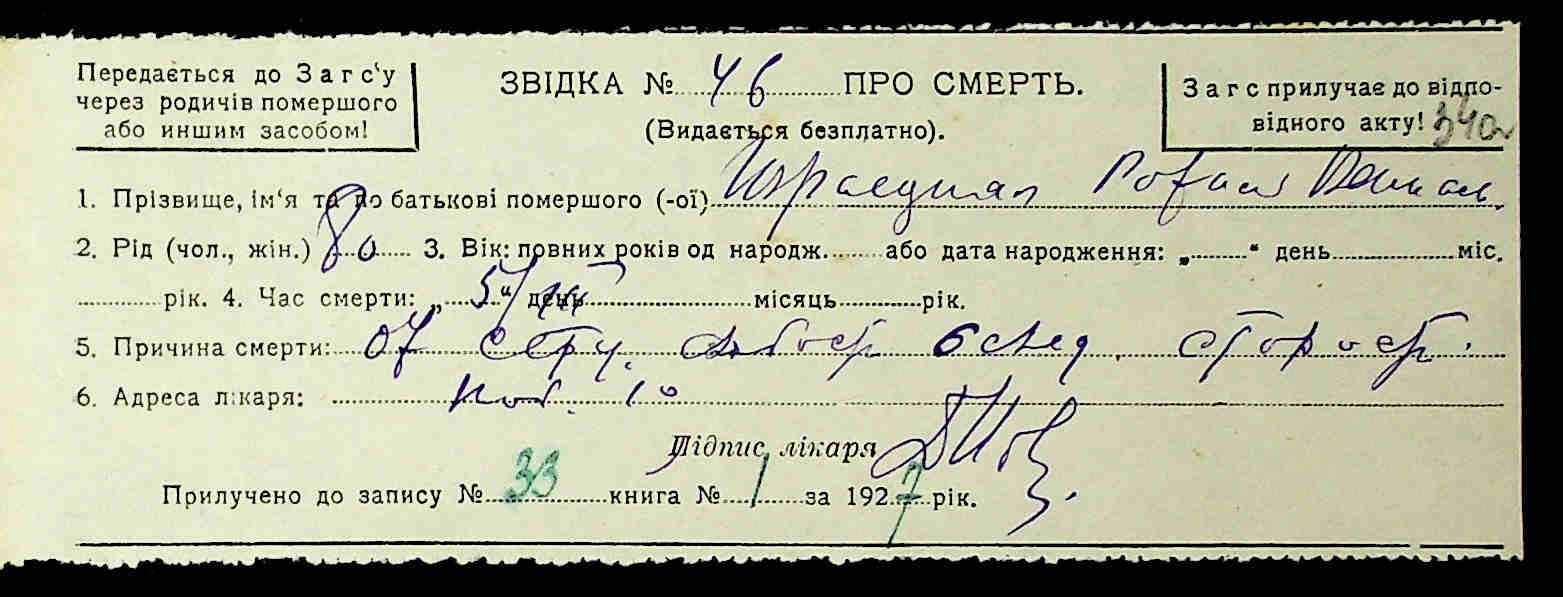 Передається до Загс‘у
через родичів помершого
або иншим засобом!
ЗВІДКА № 46 ПРО СМЕРТЬ.
(Видається безплатно).
Загс прилучає до відпо-
відного акту!
1. Прізвище, ім‘я та по батькові помершого (-ої)
2. Рід (чол., жін.) 80 3. Вік: повних років од народж. або дата народження: „ “ день міс.
рік. 4. Час смерти: „5“ день місяць рік.
5. Причина смерти: От серд. слабост вслед. старост.
6. Адреса лікаря:
Підпис лікаря
Прилучено до запису № 33 книга № 1 за 1927 рік.